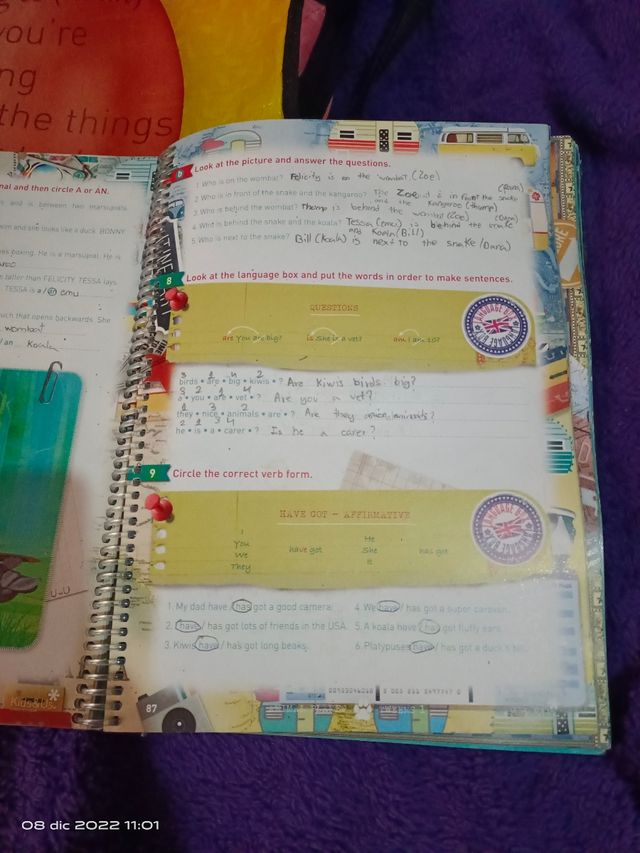 you're
ng
the things
b Look at the picture and answer the questions.
nal and then circle A or AN.
1 Who is on the wombat? Felicity is on the wombat (Zoe)
2 Who is in front of the snake and the kangaroo? The Zoe is in front the snake
and the Kangaroo (thump)
3 Who is behind the wombat? Thump is behind the wombat (Zoe)
4 Who is behind the snake and the koala? Tessa (emu) is behind the snake
and Koala (Bill)
5 Who is next to the snake? Bill (koala) is next to the snake (Dana)
and is between two marsupials.
and she looks like a duck. BONNY
es boxing. He is a marsupial. He is
is taller than FELICITY. TESSA lays
TESSA is a / an emu
which that opens backwards. She
wombat
/ an koala
8 Look at the language box and put the words in order to make sentences.
QUESTIONS
are You are big? is She is a vet? am I am 10?
LANGUAGE BOX
3 1 4 2
birds • are • big • kiwis • ? Are kiwis birds big?
3 2 1 4
a • you • are • vet • ? Are you a vet?
1 3 2
they • nice • animals • are • ? Are they animals?
2 1 3 4
he • is • a • carer • ? Is he a carer?
9 Circle the correct verb form.
HAVE GOT – AFFIRMATIVE
I
You
We
They
have got
He
She
It
has got
LANGUAGE BOX
1. My dad have / has got a good camera.
2. I have / has got lots of friends in the USA.
3. Kiwis have / has got long beaks.
4. We have / has got a super caravan.
5. A koala have / has got fluffy ears.
6. Platypuses have / has got a duck's bill.
U-U
Kids&Us
87
08 dic 2022 11:01